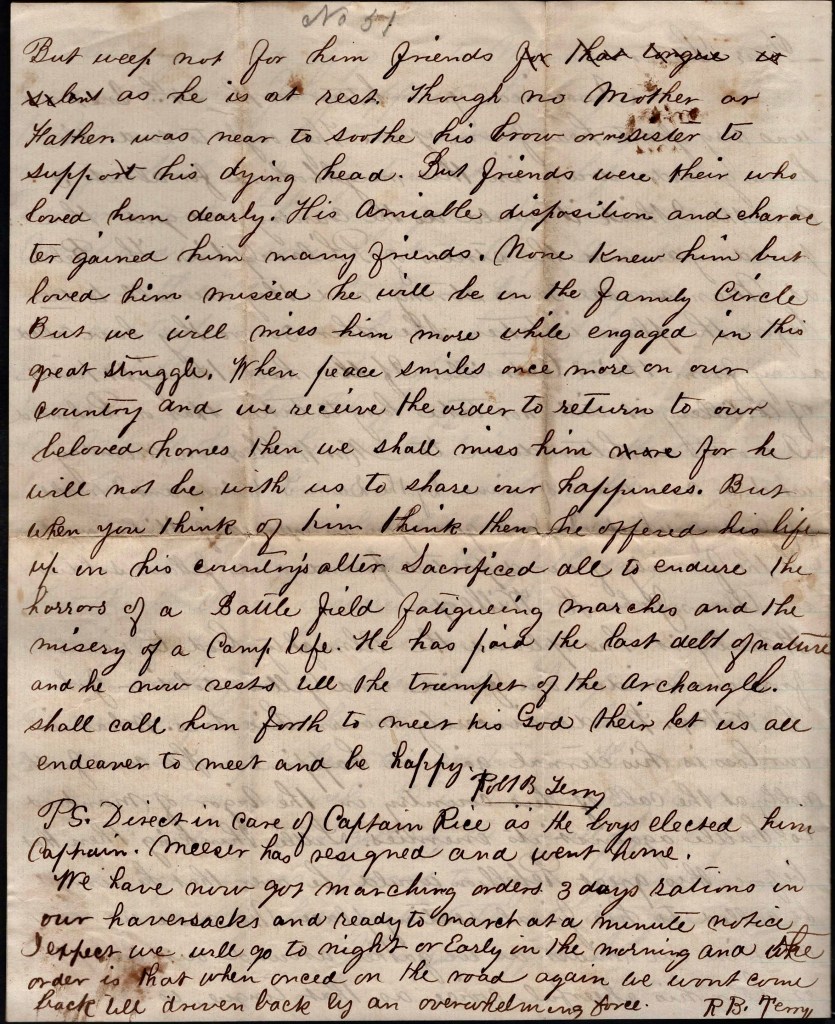 No 51
But weep not for him friends for that tongue is
silent as he is at rest. Though no Mother or
Father was near to soothe his brow or sister to
support his dying head. But friends were their who
loved him dearly. His Amiable disposition and charac
ter gained him many friends. None Knew him but
loved him missed he will be in the family Circle
But we will miss him more while engaged in this
great struggle. When peace smiles once more on our
country and we receive the order to return to our
beloved homes then we shall miss him more for he
will not be with us to share our happiness. But
when you think of him think then he offered his life
up on his country's alter Sacrificed all to endure the
horrors of a Battle field fatigueing marches and the
misery of a Camp life. He has paid the last debt of nature
and he now rests till the trumpet of the Archangel.
shall call him forth to meet his God their let us all
endeaver to meet and be happy.
Robt B Terry
PS. Direct in care of Captain Rice as the boys elected him
Captain. Meeser has resigned and went home.
We have now got marching orders 3 days rations in
our haversacks and ready to march at a minute notice
I expect we will go to night or Early in the morning and the
order is that when onced on the road again we wont come
back till driven back by an overwhelming force.
R B. Terry